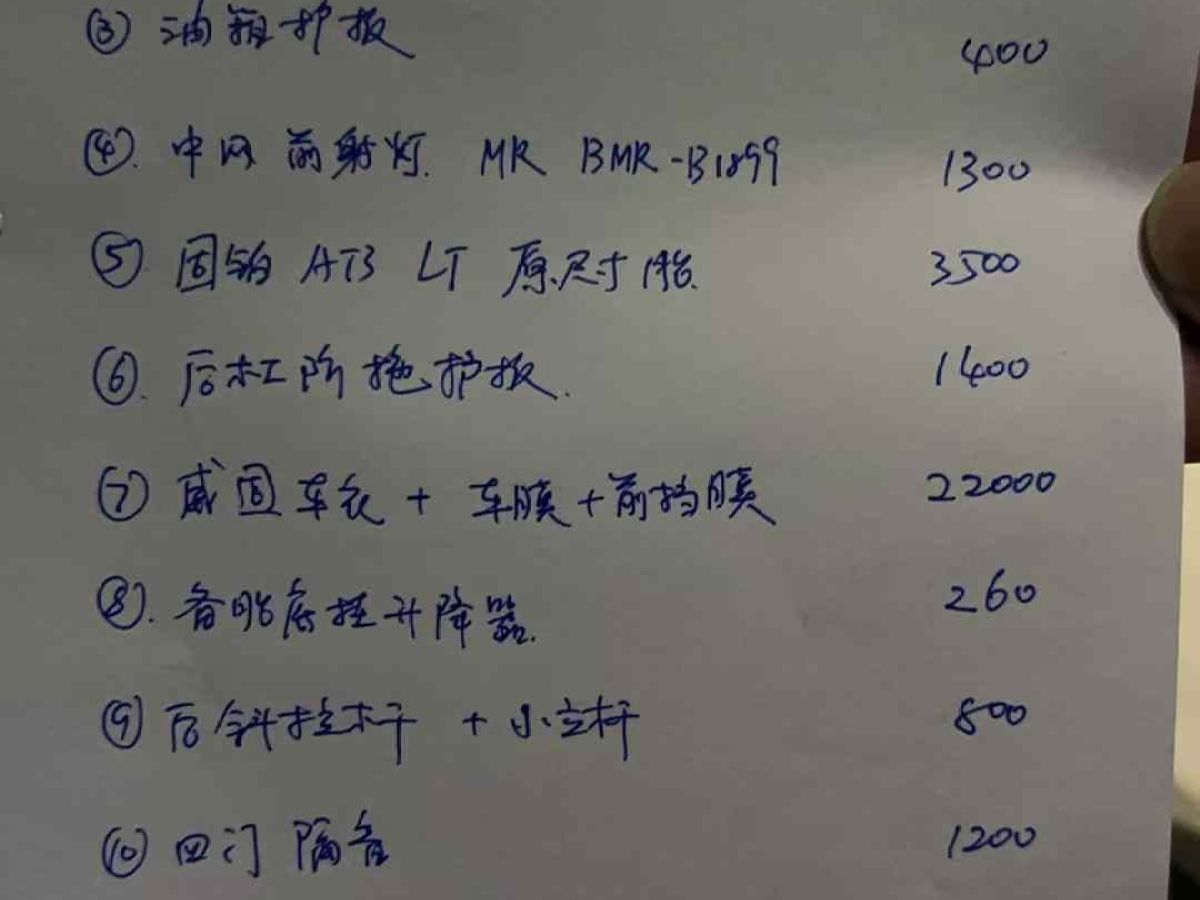 ③ 油箱护板 400
④. 中网前射灯. MR BMR-B1899 1300
⑤ 固铂 AT3 LT 原尺寸胎. 3500
⑥. 后杠防拖护板. 1400
⑦ 威固车衣 + 车膜 + 前挡膜 22000
⑧. 备胎底挂升降器. 260
⑨ 后斜拉杆 + 小立杆 800
⑩ 四门隔音 1200